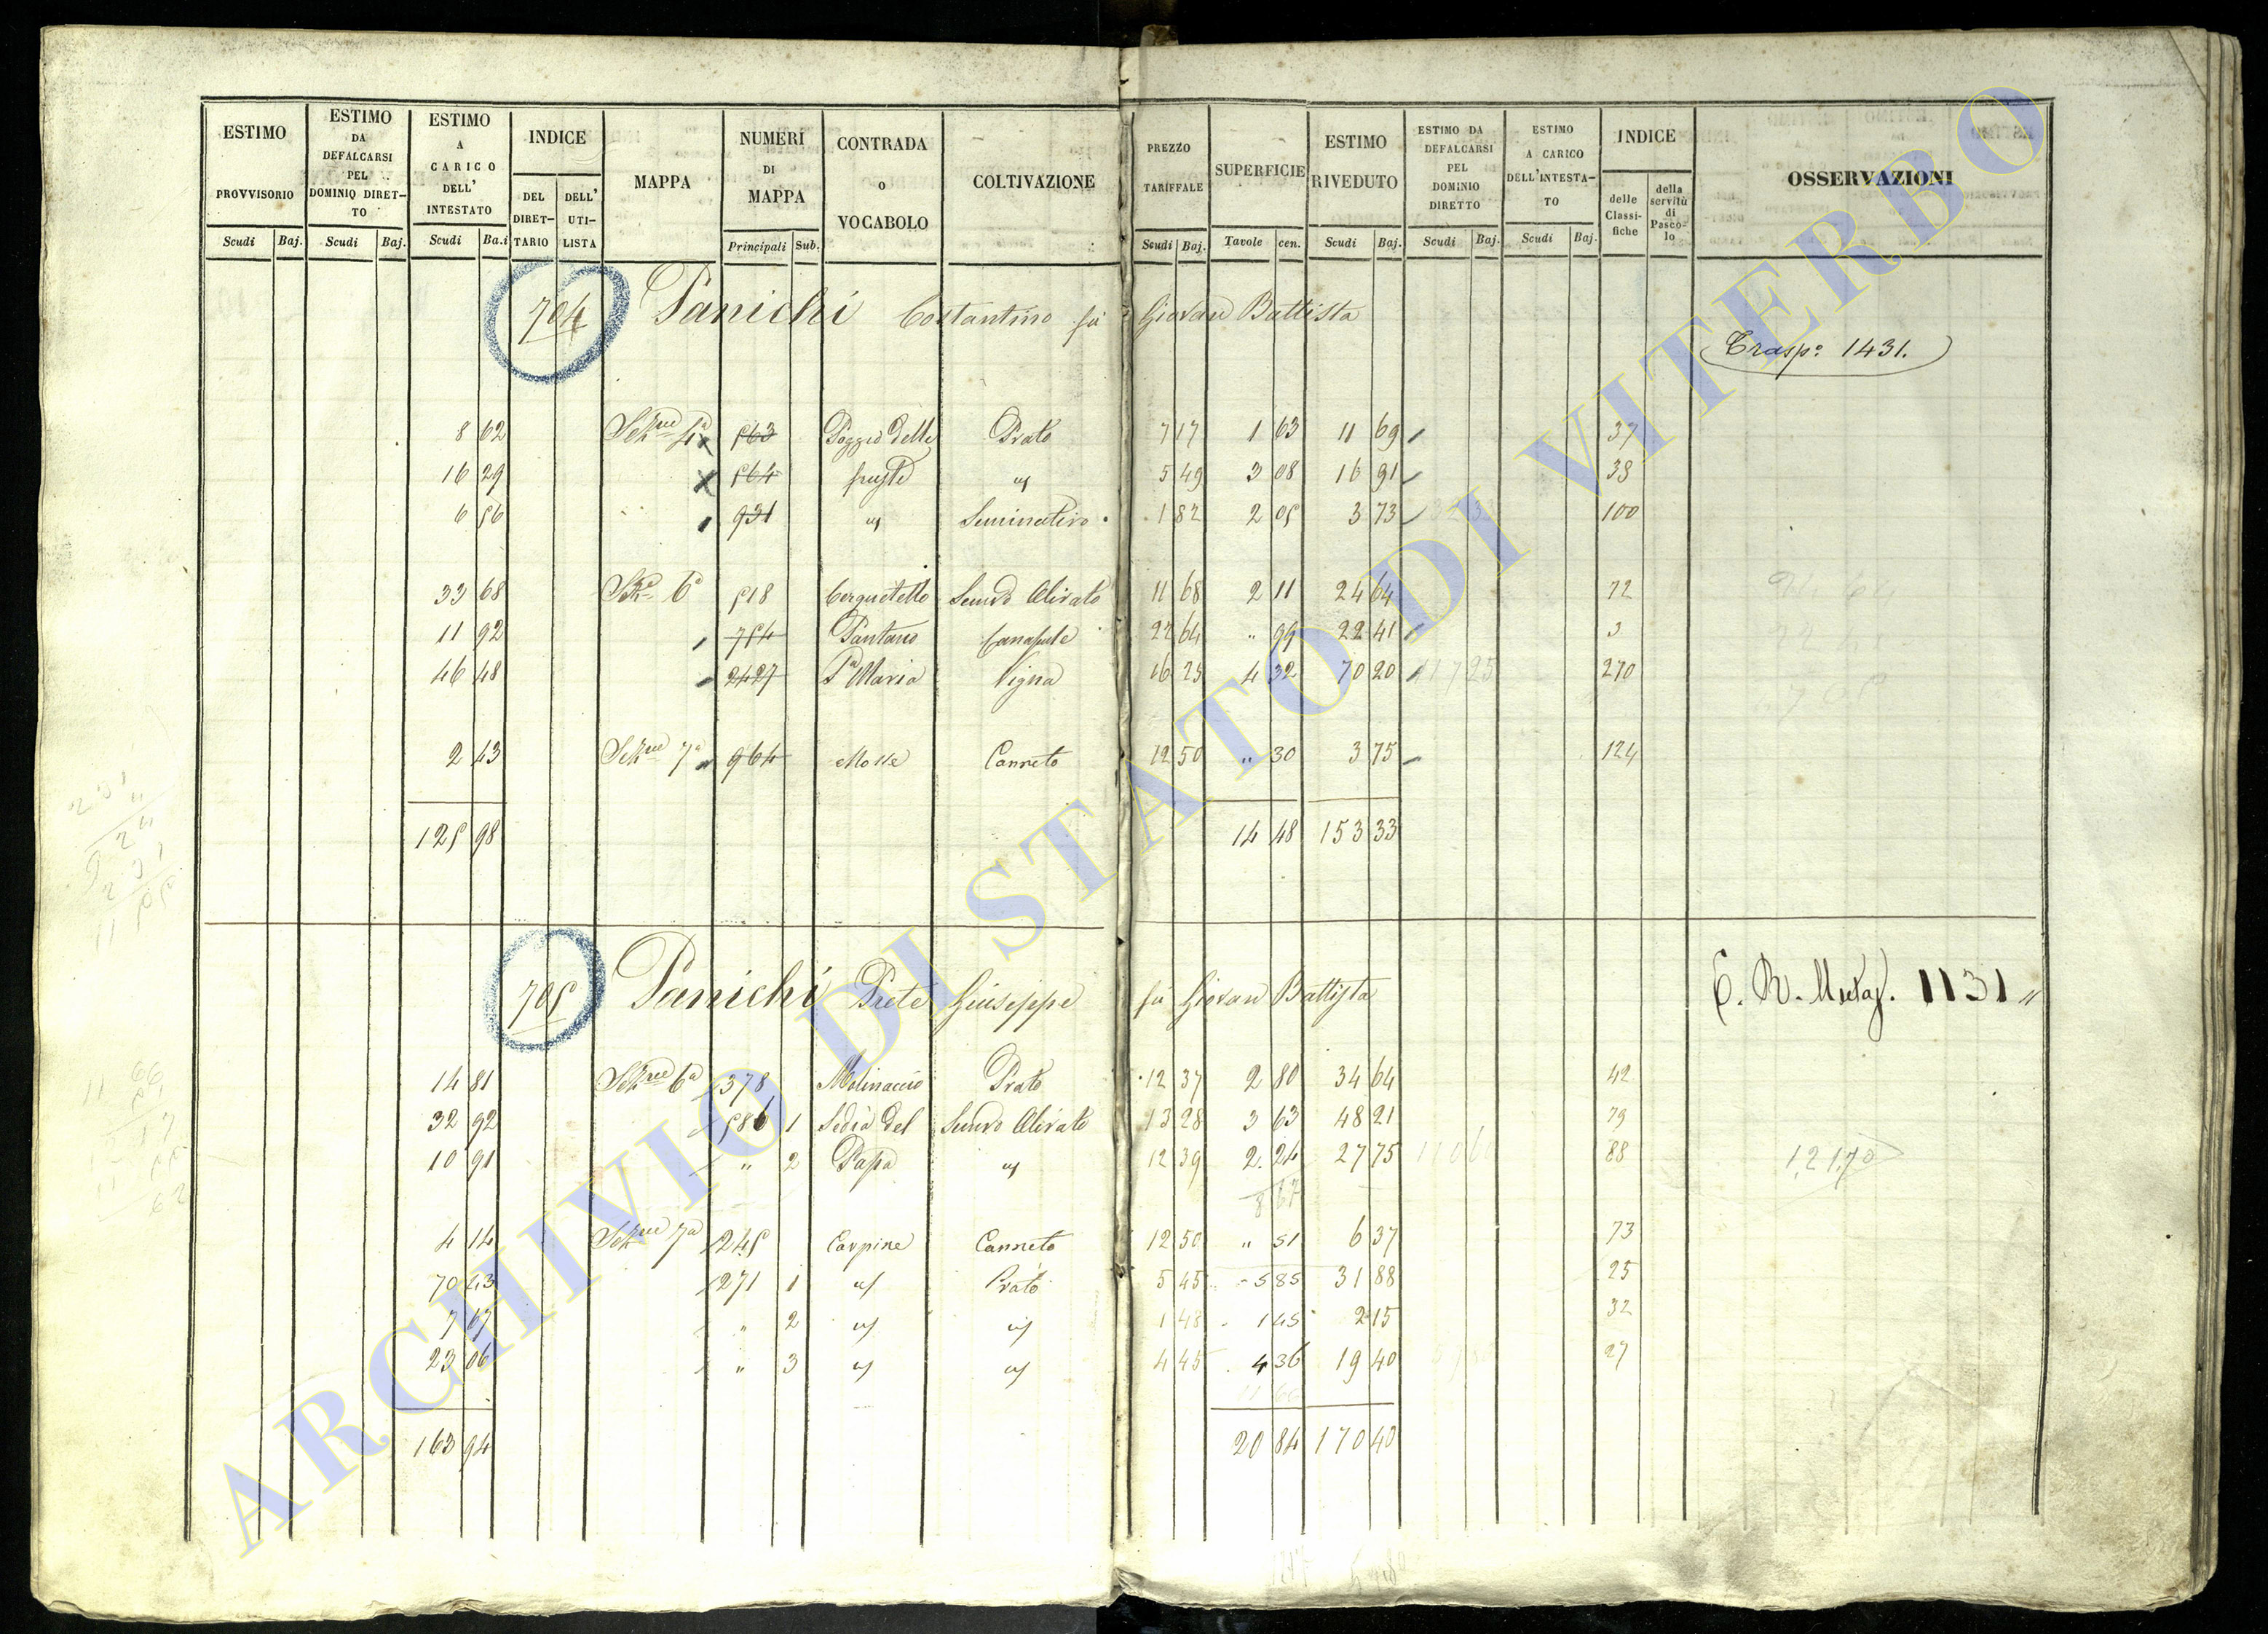 ESTIMO PROVVISORIO Scudi Baj.
ESTIMO DA DEFALCARSI PEL DOMINIO DIRET- TO Scudi Baj.
ESTIMO A CARICO DELL' INTESTATO Scudi Ba.i
INDICE DEL DIRET- TARIO DELL' UTI- LISTA
MAPPA
NUMERI DI MAPPA Principali Sub.
CONTRADA o VOCABOLO
COLTIVAZIONE
PREZZO TARIFFALE Scudi Baj.
SUPERFICIE Tavole cen.
ESTIMO RIVEDUTO Scudi Baj.
ESTIMO DA DEFALCARSI PEL DOMINIO DIRETTO Scudi Baj.
ESTIMO A CARICO DELL'INTESTA- TO Scudi Baj.
INDICE delle Classi- fiche della servitù di Pasco- lo
OSSERVAZIONI
704 Panichi Costantino fu Giovan Battista
Trasp.o 1431.
8 62 563 Poggio delle Prato 7 17 1 63 11 69 37
16 29 564 " 5 49 3 08 16 91 38
6 56 931 " Seminativo 1 82 2 05 3 73 100
33 68 6a 518 Cerquetello Semvo Olivato 11 68 2 11 24 64 72
11 92 754 Pantano Canapule 22 64 " 99 22 41 3
46 48 2427 Sa Maria Vigna 16 25 4 32 70 20 270
2 43 7a 964 Canneto 12 50 " 30 3 75 124
125 98 14 48 153 33
705 Panichi Prete Giuseppe fu Giovan Battista
1131 "
14 81 6a 378 Molinaccio Prato 12 37 2 80 34 64 42
32 92 586 1 Sedia del Semvo Olivato 13 28 3 63 48 21 79
10 91 " 2 Papa " 12 39 2 24 27 75 88
121.70
8 67
4 14 7a 245 Carpine Canneto 12 50 " 51 6 37 73
70 43 271 1 " Prato 5 45 5 85 31 88 25
7 67 " 2 " " 1 48 1 45 2 15 32
23 06 " 3 " " 4 45 4 36 19 40 27
163 94 20 84 170 40
ARCHIVIO DI STATO DI VITERBO